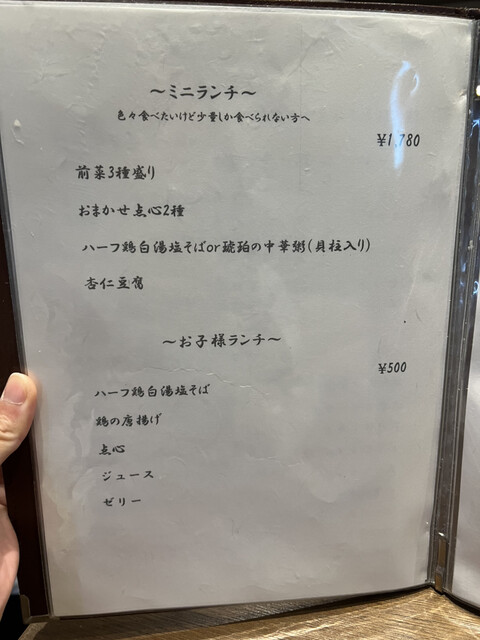 ～ミニランチ～
色々食べたいけど少量しか食べられない方へ
¥1,780
前菜3種盛り
おまかせ点心2種
ハーフ鶏白湯塩そばor琥珀の中華粥(貝柱入り)
杏仁豆腐
～お子様ランチ～
¥500
ハーフ鶏白湯塩そば
鶏の唐揚げ
点心
ジュース
ゼリー